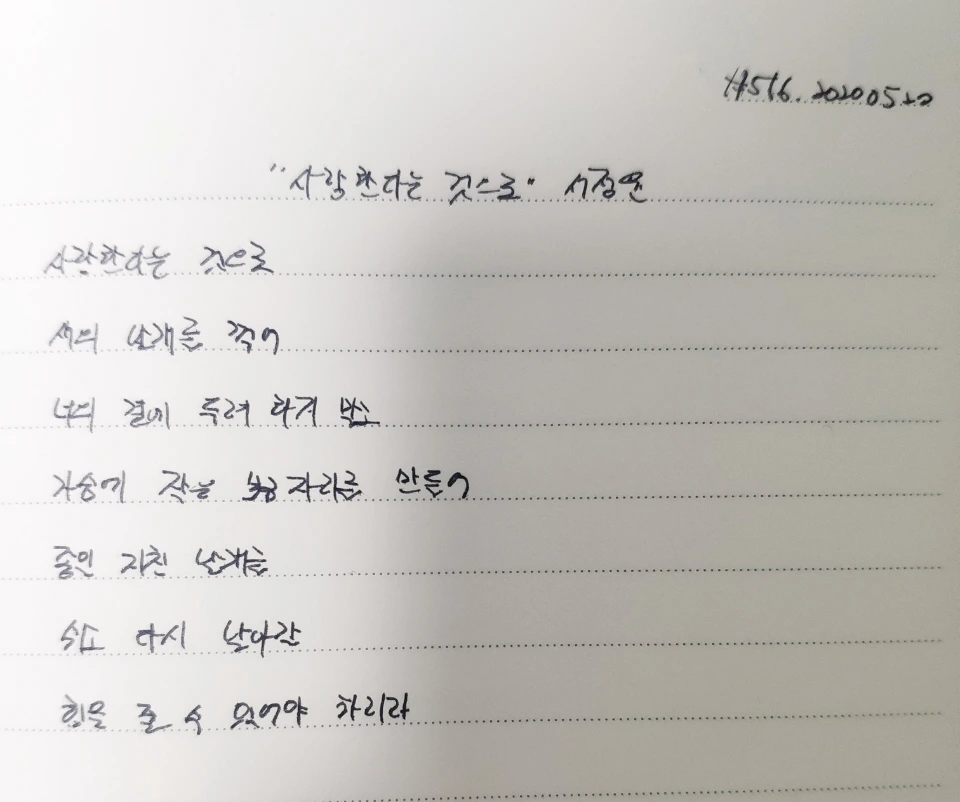 #516. 20200520
"사랑한다는 것으로" 서정윤
사랑한다는 것으로
새의 날개를 꺾어
너의 곁에 두려 하지 말고
가슴에 작은 보금자리를 만들어
종일 지친 날개를
쉬고 다시 날아갈
힘을 줄 수 있어야 하리라